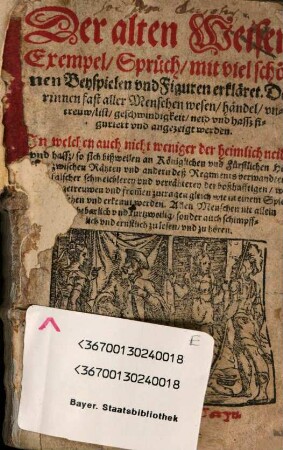 Der alten Weisen
Exempel / Sprüch / mit viel schö
nen Beyspielen vnd Figuren erkläret. Da
rinnen fast aller Menschen wesen / händel / vn-
treuw / list / geschwindigkeit / neid vnd hassz fi-
guriert vnd angezeigt werden.
In welchen auch nicht weniger der heimlich neid
vnd hassz / so sich bißweilen an Königlichen vnd Fürstlichen
zwischen Rähten vnd andern deß Regiments verwandten
falscher schmeichlerey vnd verrähterey der boßhafftigen /
getreuwen vnd frommen zutragen gleich wie in einem Spie
sehen vnd erkennt werden. Allen Menschen nit allein
vnd kurzweilig / sonder auch
lich vnd ernstlich zu lesen / vnd zu hören.
<36700130240018
<36700130240018
Bayer. Staatsbibliothek
E